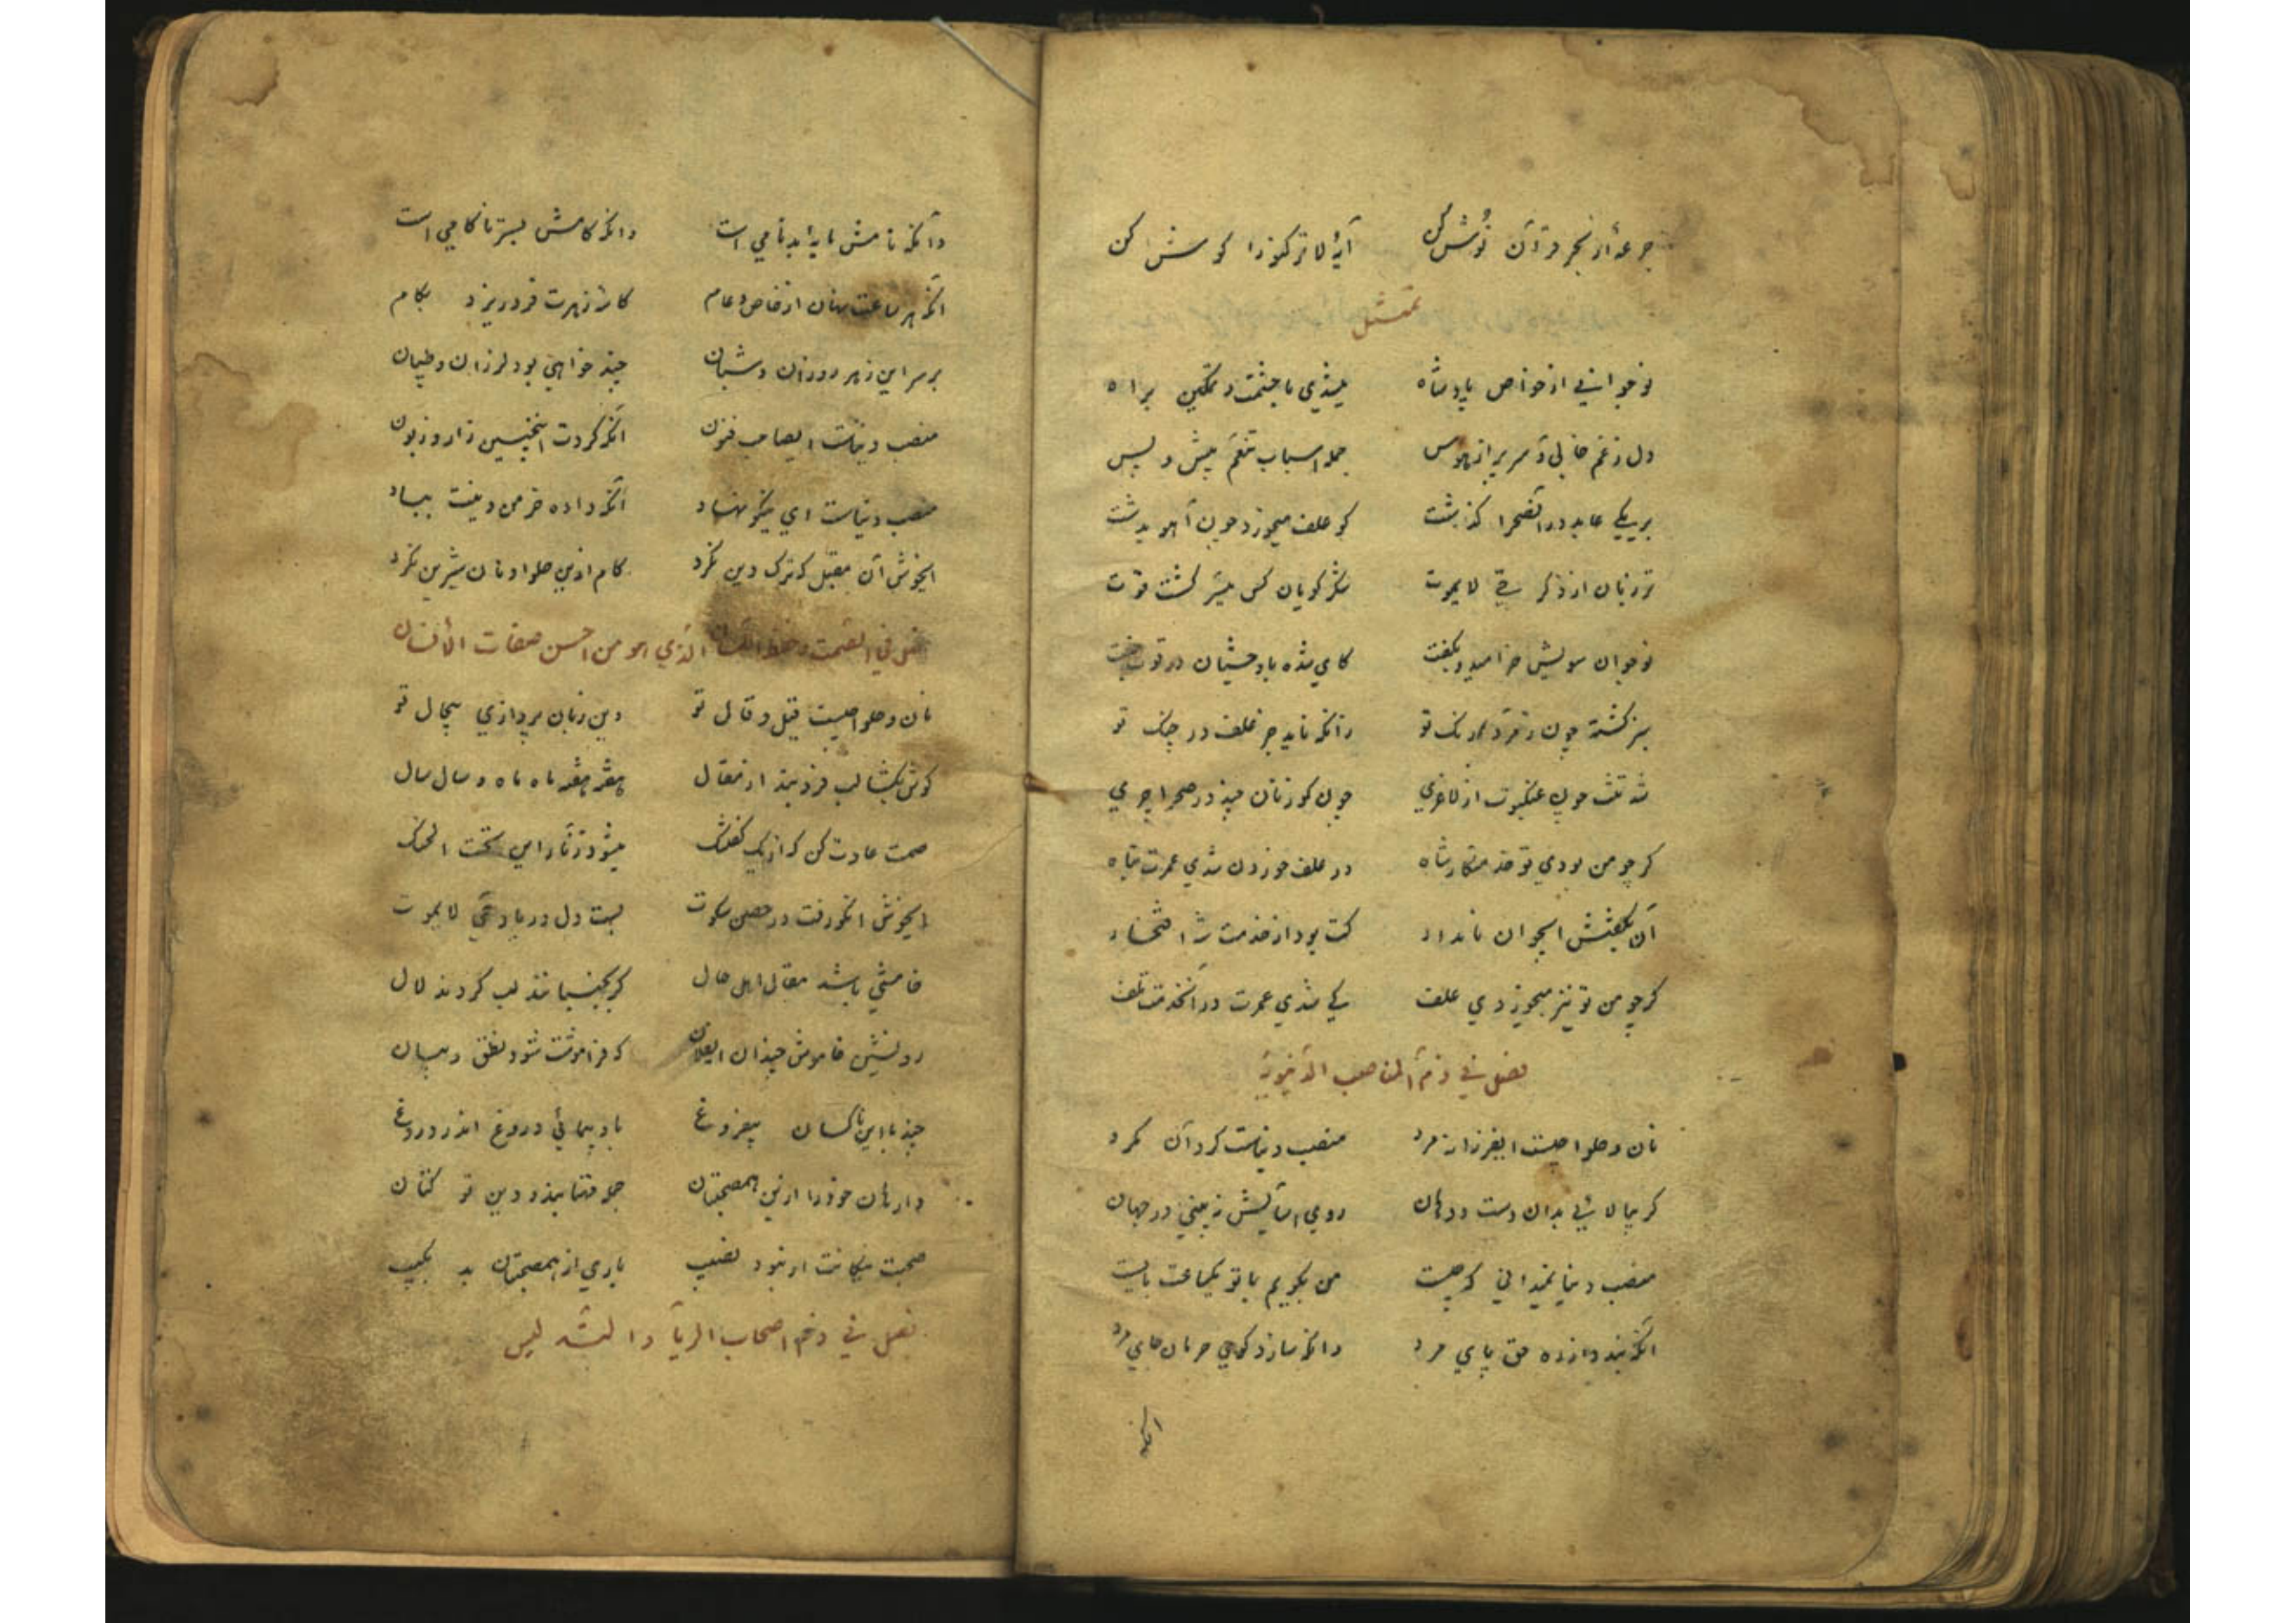 جرعهٔ از بحر قرآن نوش کن آیهٔ لا ترکنوا را گوش کن
تمثیل
نوجوانی از خواص پادشاه میشدی با حشمت و تمکین براه
دل ز غم خالی و سر پر از هوس جمله اسباب تنعم پیش و پس
بر یکی عابد در آنصحرا گذشت کو علف میخورد چون آهو بدشت
تر زبان از ذکر حی لایموت شکر گویان کش میسر گشت قوت
نوجوان سویش خرامید و بگفت کای شده با وحشیان در قوت جفت
سبز گشته چون زمرد رنک تو زانکه ناید جز علف در چنک تو
شد تنت چون عنکبوت از لاغری چون گوزنان چند در صحرا چری
گر چو من بودی تو خدمتکار شاه در علف خوردن نشدی عمرت تباه
آن بگفتش ایجوان نامدار کت بود از خدمت شه افتخار
گر چو من تو نیز میخوردی علف کی شدی عمرت در آنخدمت تلف
فصل فی ذم المناصب الدنیویه
نان و حلوا چیست ایفرزانه مرد منصب دنیاست گرد آن مگرد
گر بیالائی بدان دست و دهان روی آسایش نه بینی در جهان
منصب دنیا نمیدانی که چیست من بگویم با تو یکساعت بایست
آنکه بندد از ره حق پای مرد وانکه سازد کوی حرمان جای مرد
آنکه
وآنکه نامش مایهٔ بدنامی است وانکه کامش بسر ناکامی است
آنکه هر ساعت نهان از خاص و عام کاسهٔ زهرت فرو ریزد بکام
بر سر این زهر روزان و شبان چند خواهی بود لرزان و طپان
منصب دنیاست ایصاحب فنون آنکه کردت اینچنین زار و زبون
منصب دنیاست ای نیکو نهاد آنکه داده خرمن دینت بباد
ایخوش آن مقبل که ترک دین نکرد کام ازین حلوا و نان شیرین نکرد
فصل فی الصمت وحفظ اللسان الذی هو من احسن صفات الانسان
نان و حلوا چیست قیل و قال تو وین زبان پردازی بیحال تو
گوش بکشا لب فرو بند از مقال هفته هفته ماه ماه و سال سال
صمت عادت کن که از یک گفتنک میشود زنار این تحت الحنک
ایخوش آنکو رفت در حصن سکوت بست دل در یاد حی لایموت
خامشی باشد مقال اهل حال گر بجنبانند لب گردند لال
رو نشین خاموش چندان ایفلان که فراموشت شود نطق و بیان
چند با این ناکسان بیفروغ باد پیمائی دروغ اندر دروغ
وارهان خود را ازین همصحبتان جمله مهتابند و دین تو کتان
صحبت نیکانت ار نبود نصیب باری از همصحبتان بد بکیب
فصل فی ذم اصحاب الریآ والتدلیس